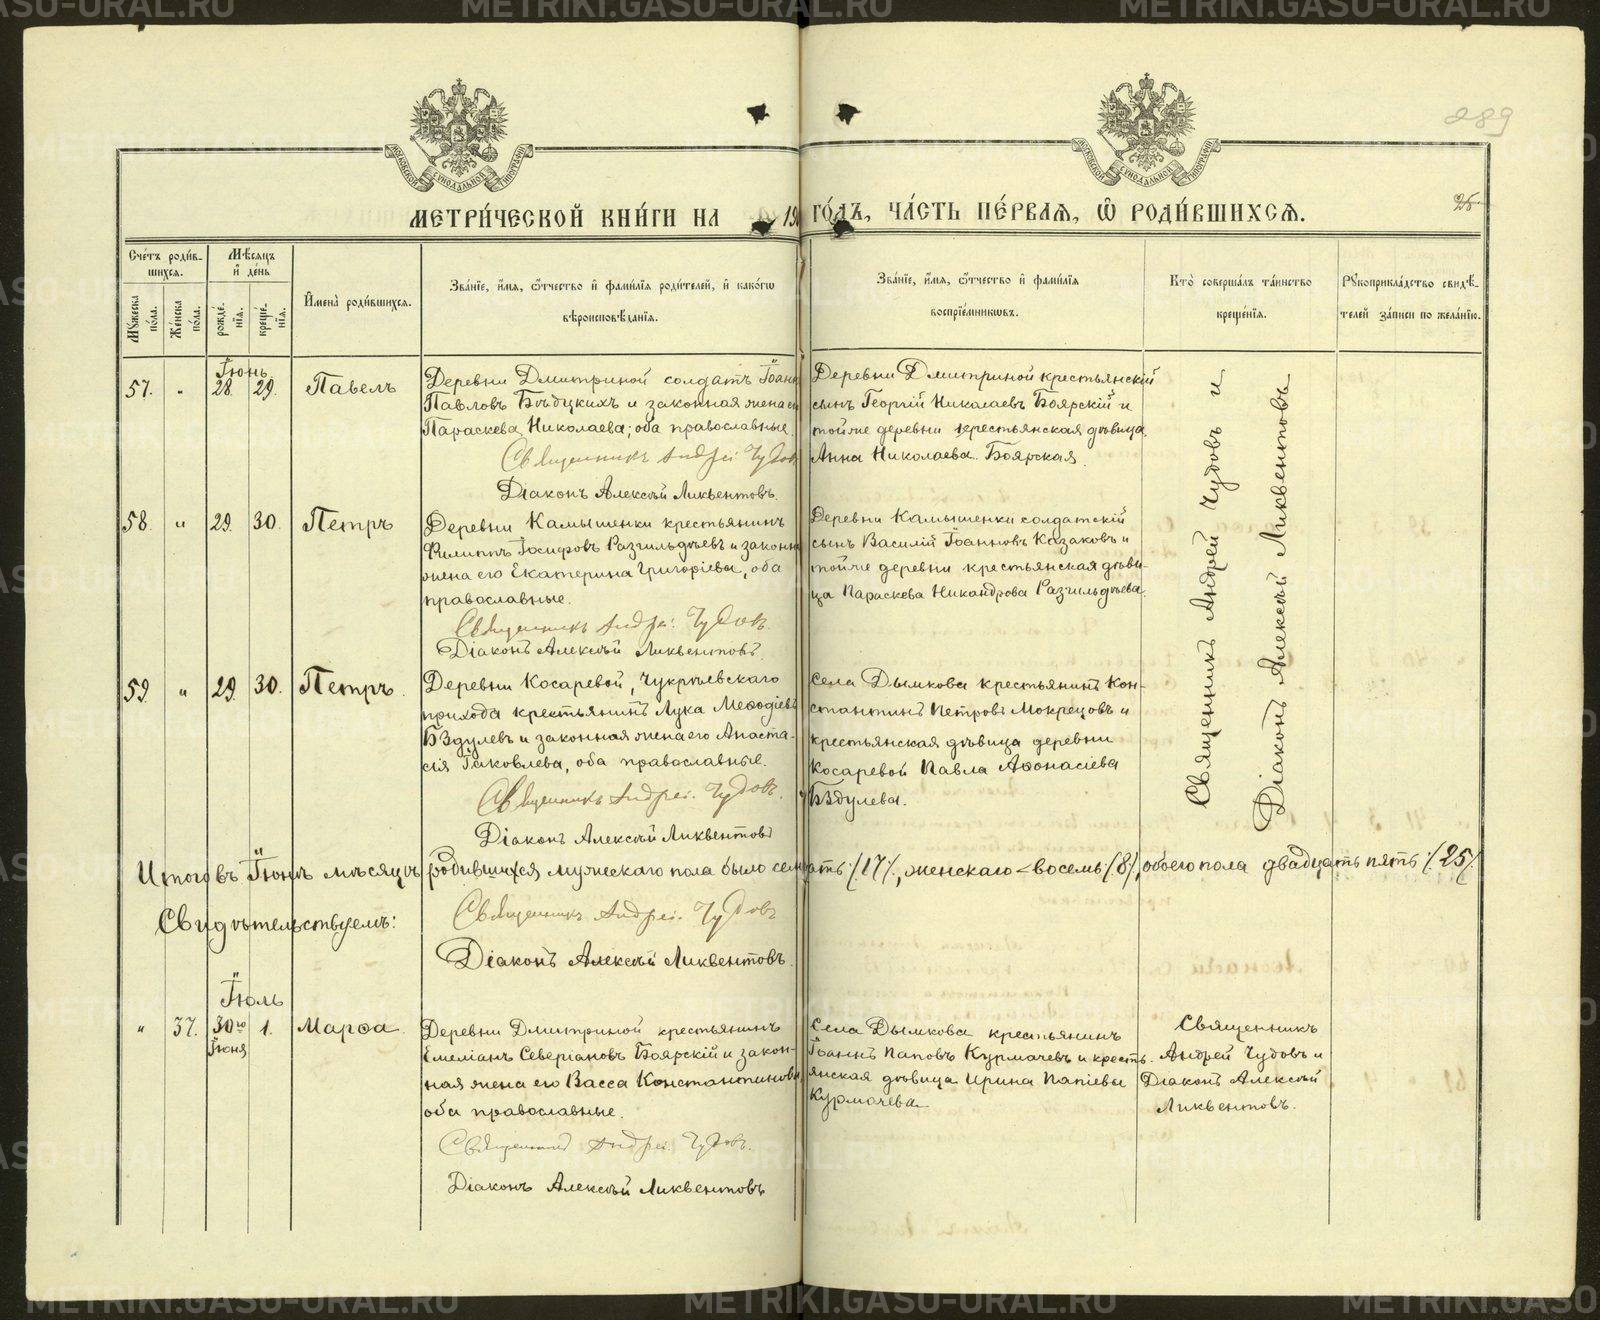 METRIKI.GASU-URAL.RU
289
МЕТРИ́ЧЕСКОЙ КНИ́ГИ НА 19 ГО́ДЪ, ЧА́СТЬ ПЕ́РВАѦ, Ѡ҆ РОДИ́ВШИХСѦ.
25.
Сче́тъ роди́в-
шихсѧ.
Мѣ́сѧцъ
и҆ де́нь
Мꙋ́жеска
по́ла.
Же́нска
по́ла.
рожде́-
нїѧ.
креще́-
нїѧ.
И҆мена̀ роди́вшихсѧ.
Зва́нїе, и҆́мѧ, ѻ҆́тчество и҆ фами́лїѧ роди́телей, и҆ како́гѡ
вѣроисповѣ́данїѧ.
Зва́нїе, и҆́мѧ, ѻ҆́тчество и҆ фами́лїѧ
воспрїе́мникѡвъ.
Кто̀ соверша́лъ та́инство
креще́нїѧ.
Рꙋкоприкла́дство свидѣ́-
телей за́писи по жела́нїю.
Іюнь
57. „ 28. 29. Павелъ
Деревни Дмитриной солдатъ Іоаннъ
Павловъ Бѣдцкихъ и законная жена ег
Параскева Николаева; оба православные.
Священникъ Андрей Чудовъ
Діаконъ Алексѣй Ликвентовъ.
Деревни Дмитриной крестьянскій
сынъ Георгій Николаевъ Боярскій и
тойже деревни крестьянская дѣвица
Анна Николаева Боярская.
58. „ 29. 30. Петръ
Деревни Камышенки крестьянинъ
Филиппъ Іосифовъ Разгильдѣевъ и законн
жена его Екатерина Григоріева, оба
православные.
Священникъ Андрей Чудовъ.
Діаконъ Алексѣй Ликвентовъ.
Деревни Камышенки солдатскій
сынъ Василій Іоанновъ Казаковъ и
тойже деревни крестьянская дѣви-
ца Параскева Никандрова Разгильдѣева.
59. „ 29. 30. Петръ.
Деревни Косаревой, Чукрѣевскаго
прихода крестьянинъ Лука Меѳодіевъ
Бздулевъ и законная жена его Анаста-
сія Іаковлева, оба православные.
Священникъ Андрей Чудовъ.
Діаконъ Алексѣй Ликвентовъ
Села Дымкова крестьянинъ Кон-
стантинъ Петровъ Мокрецовъ и
крестьянская дѣвица деревни
Косаревой Павла Аѳонасіева
Бздулева.
Священникъ Андрей Чудовъ и
Діаконъ Алексѣй Ликвентовъ
Итого въ Іюнѣ мѣсяцѣ родившихся мужескаго пола было семнать /17/, женскаго – восемь /8/, обоего пола двадцать пять /25/.
Свидѣтельствуемъ:
Священникъ Андрей Чудовъ
Діаконъ Алексѣй Ликвентовъ.
Іюль
„ 37. 30го 1. Марѳа.
Іюня
Деревни Дмитриной крестьянинъ
Емеліанъ Северіановъ Боярскій и закон-
ная жена его Васса Константинова
оба православные.
Священникъ Андрей Чудовъ.
Діаконъ Алексѣй Ликвентовъ
Села Дымкова крестьянинъ
Іоаннъ Паповъ Курмачевъ и кресть-
янская дѣвица Ирина Папіева
Курмачева
Священникъ
Андрей Чудовъ и
Діаконъ Алексѣй
Ликвентовъ.